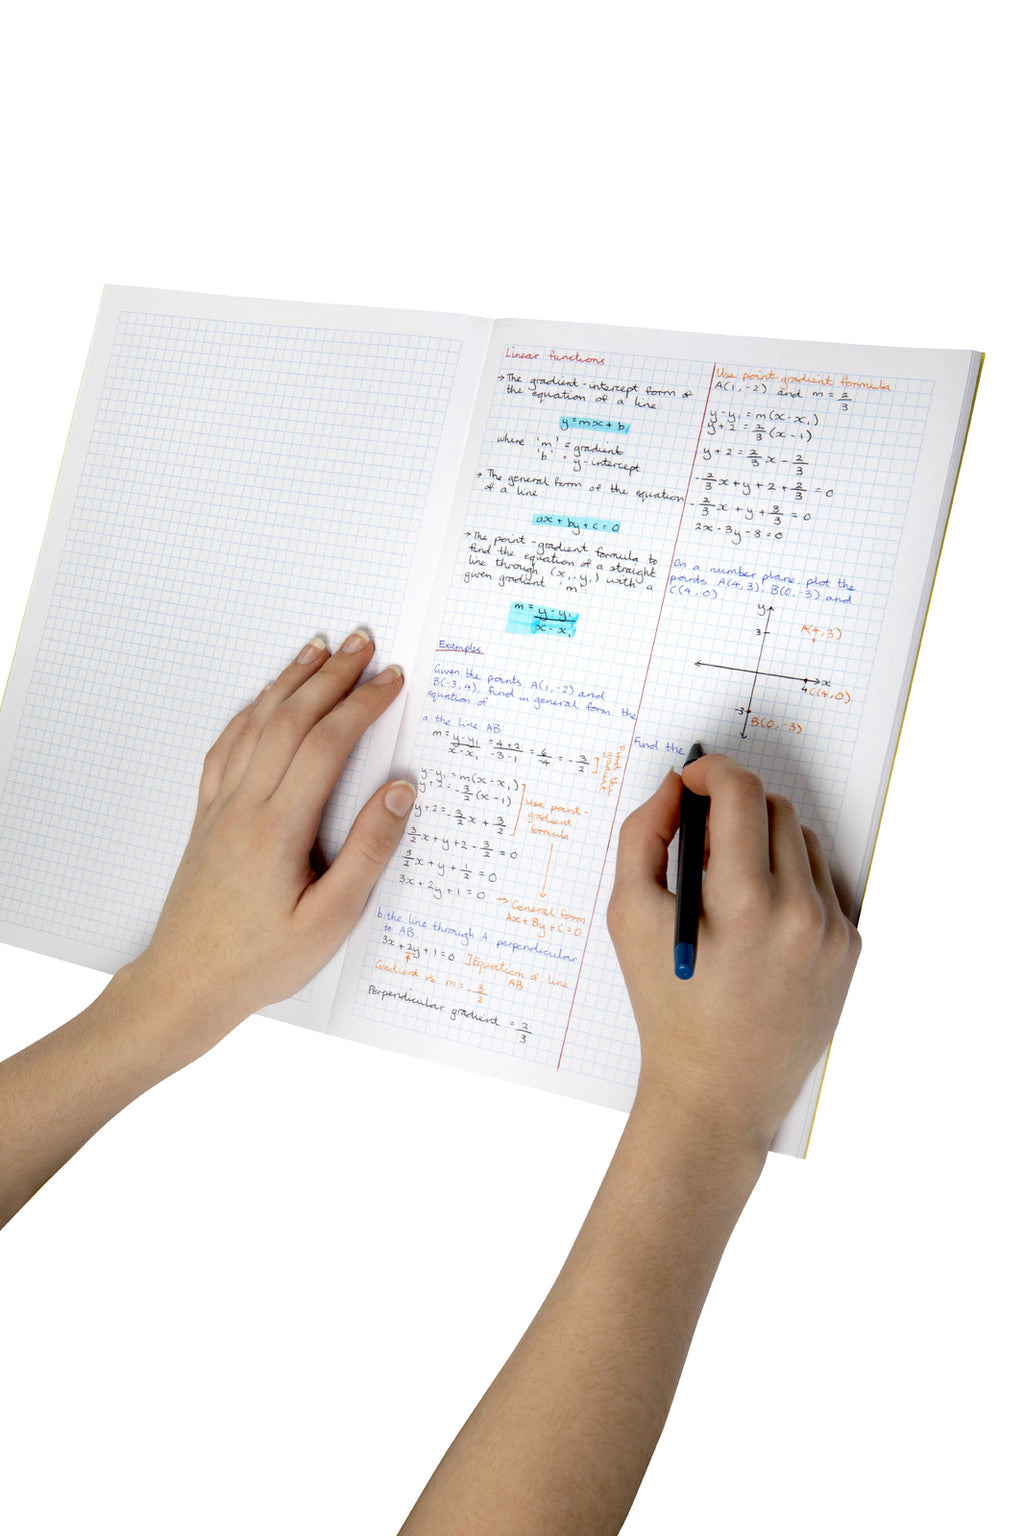 Linear functions
→ The gradient-intercept form of
the equation of a line
y = mx + b
where 'm' = gradient
'b' = y-intercept
→ The general form of the equation
of a line
ax + by + c = 0
→ The point-gradient formula to
find the equation of a straight
line through (x₁, y₁) with a
given gradient 'm'
m = y - y₁
x - x₁
Examples
Given the points A(1,-2) and
B(-3,4), find in general form the
equation of
a. the line AB
m = y-y₁/x-x₁ = 4+2/-3-1 = 6/-4 = -3/2 ] Find the gradient
y-y₁ = m(x-x₁)
y+2 = -3/2(x-1)
y+2 = -3/2x + 3/2
use point-
gradient
formula
3/2x + y + 2 - 3/2 = 0
3/2x + y + 1/2 = 0
3x + 2y + 1 = 0 → General form
Ax + By + C = 0
b. the line through A perpendicular
to AB.
3x + 2y + 1 = 0 ] Equation of line
AB
Gradient is m = -3/2
Perpendicular gradient = 2/3
Use point gradient formula
A(1,-2) and m = 2/3
y-y₁ = m(x-x₁)
y+2 = 2/3(x-1)
y+2 = 2/3x - 2/3
-2/3x + y + 2 + 2/3 = 0
-2/3x + y + 8/3 = 0
2x - 3y - 8 = 0
On a number plane, plot the
points A(4,3), B(0,-3) and
C(4,0)
y
3
A(4,3)
x
4
C(4,0)
-3
B(0,-3)
Find the